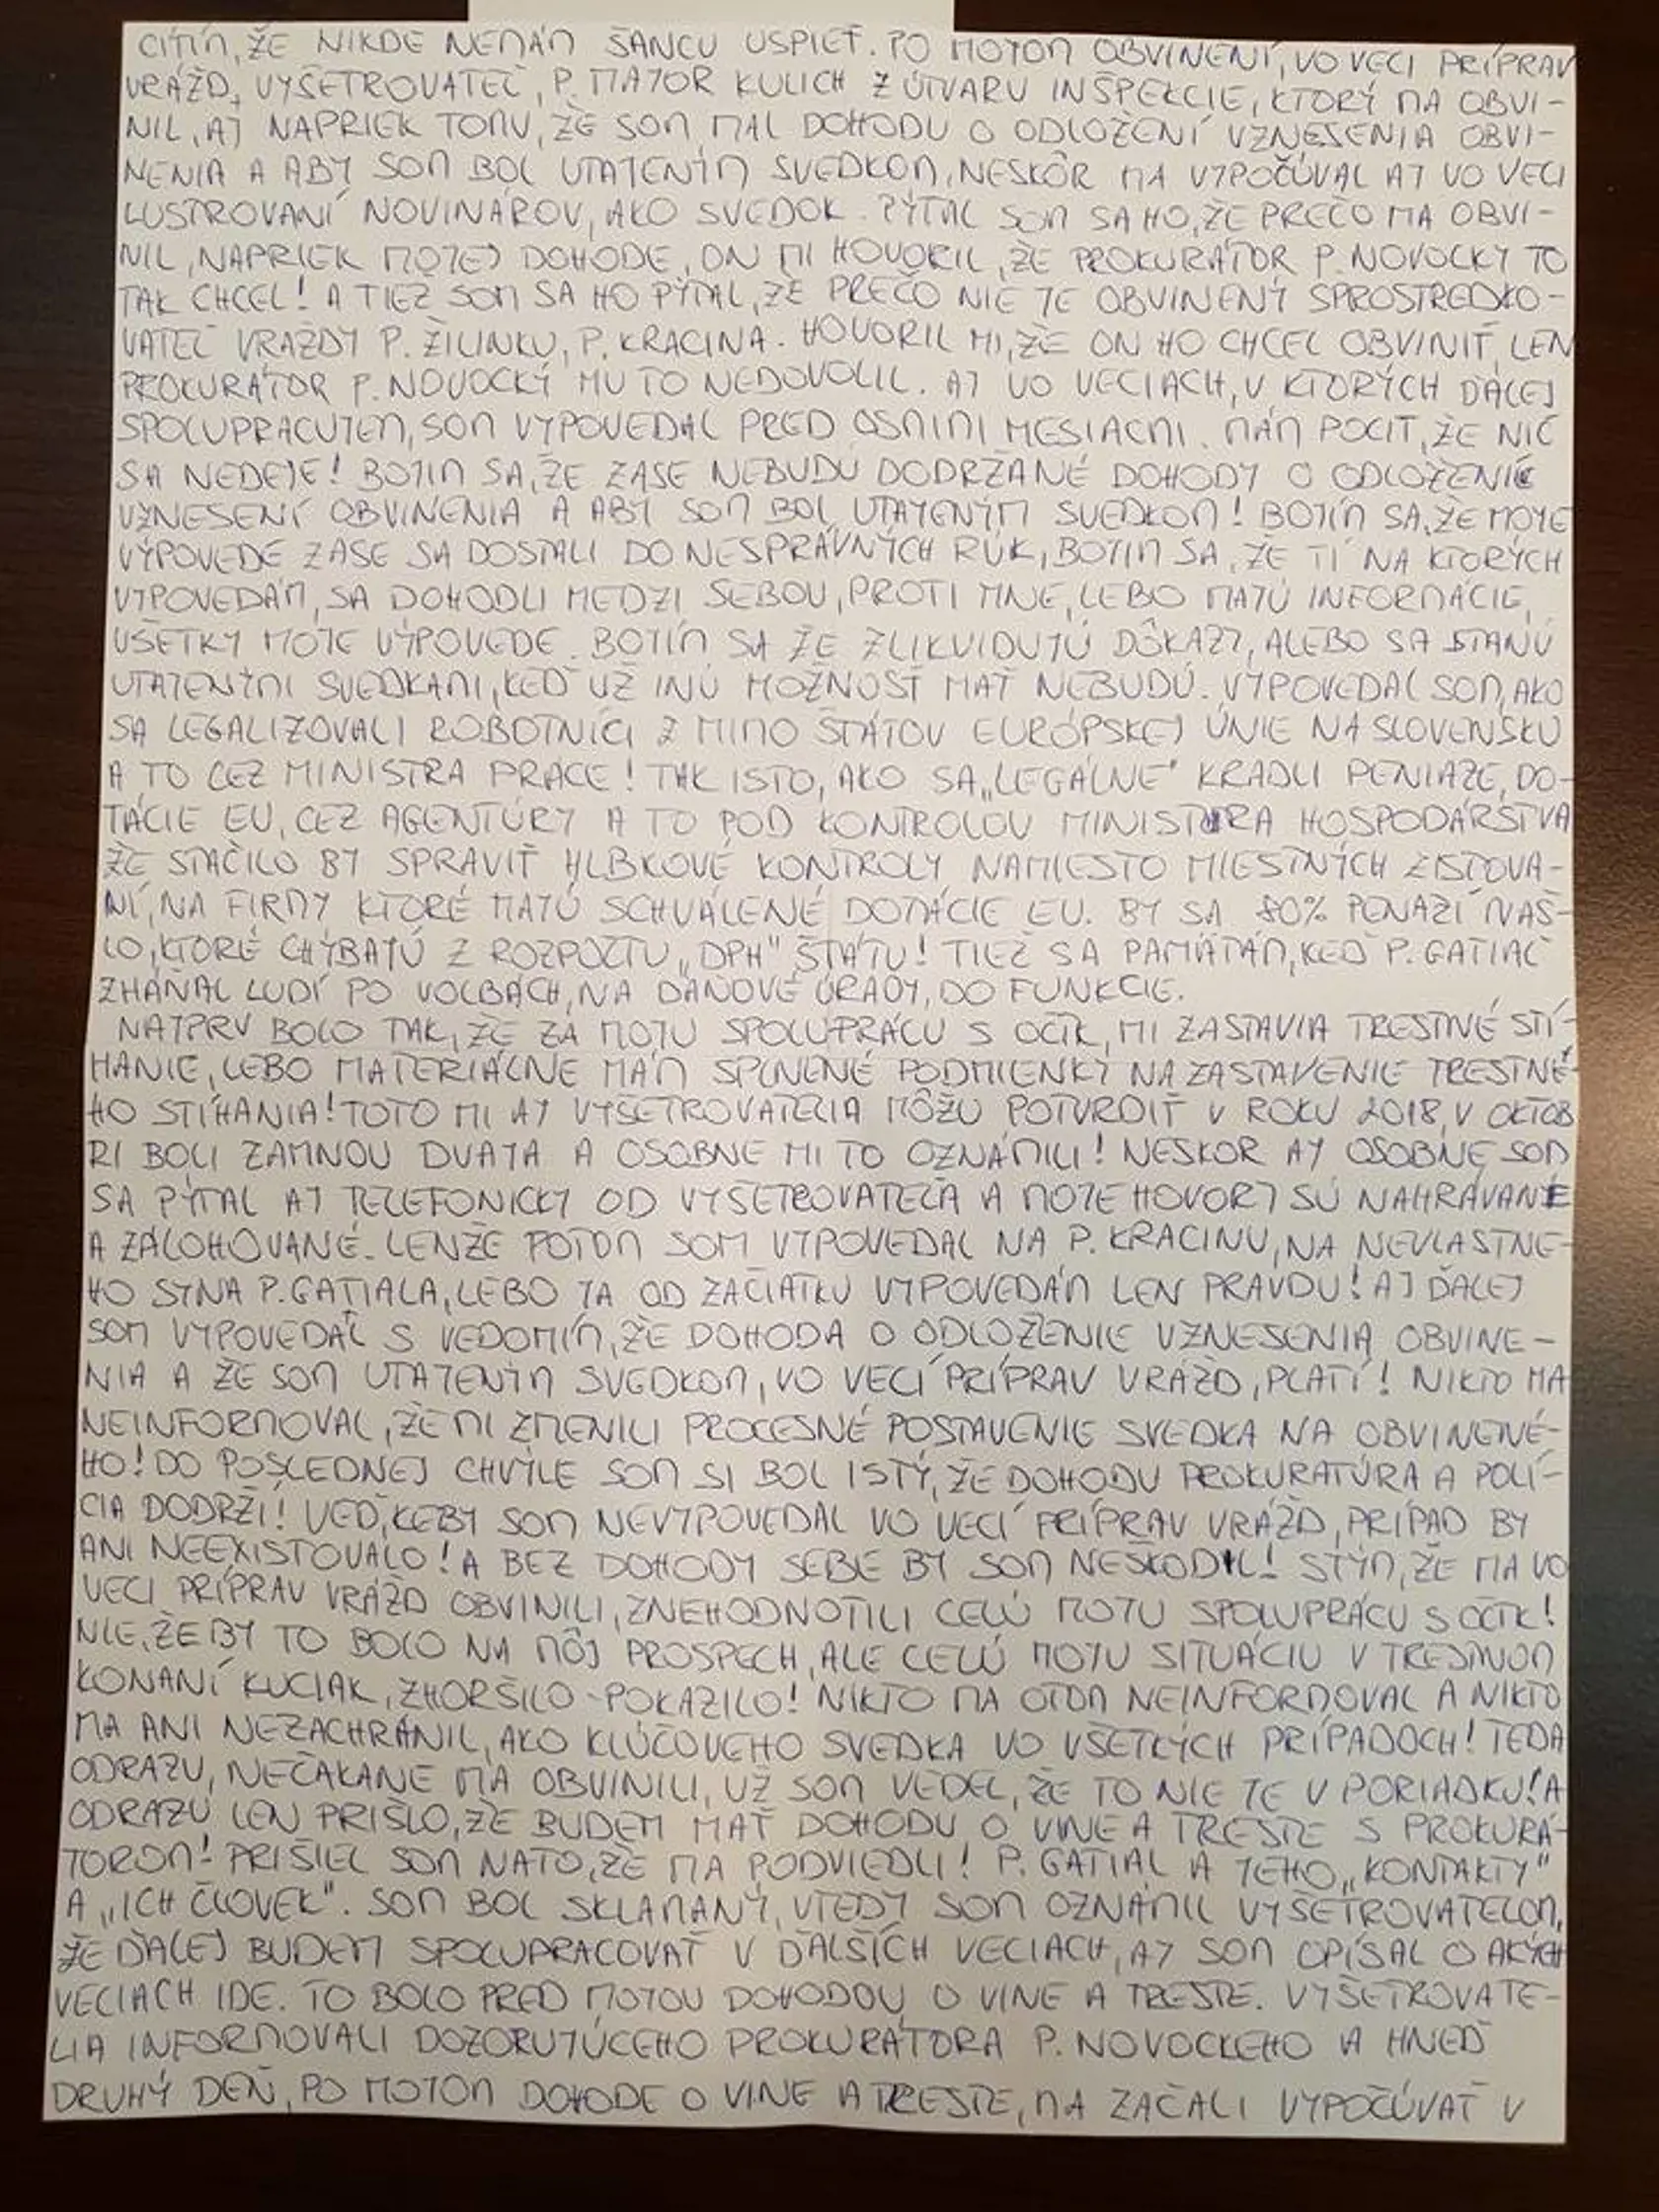 CÍTÍM, ŽE NIKDE NEMÁM ŠANCU USPIEŤ. PO MOJOM OBVINENÍ, VO VECI PRÍPRAV
VRÁŽD, VYŠETROVATEĽ, P. MAJOR KULICH Z ÚTVARU INŠPEKCIE, KTORÝ MA OBVI-
NIL, AJ NAPRIEK TOMU, ŽE SOM MAL DOHODU O ODLOŽENÍ VZNESENIA OBVI-
NENIA A ABY SOM BOL UTAJENÝM SVEDKOM, NESKÔR MA VYPOČÚVAL AJ VO VECI
LUSTROVANÍ NOVINÁROV, AKO SVEDOK. PÝTAL SOM SA HO, ŽE PREČO MA OBVI-
NIL, NAPRIEK MOJEJ DOHODE, ON MI HOVORIL, ŽE PROKURÁTOR P. NOVOCKY TO
TAK CHCEL! A TIEŽ SOM SA HO PÝTAL, ŽE PREČO NIE JE OBVINENÝ SPROSTREDKO-
VATEĽ VRAŽDY P. ŽILINKU, P. KRACINA. HOVORIL MI, ŽE ON HO CHCEL OBVINIŤ, LEN
PROKURÁTOR P. NOVOCKÝ MU TO NEDOVOLIL. AJ VO VECIACH, V KTORÝCH ĎALEJ
SPOLUPRACUJEM, SOM VYPOVEDAL PRED OSMIMI MESIACMI. MÁM POCIT, ŽE NIČ
SA NEDEJE! BOJÍM SA, ŽE ZASE NEBUDÚ DODRŽANÉ DOHODY O ODLOŽENIE
VZNESENÍ OBVINENIA A ABY SOM BOL UTAJENÝM SVEDKOM! BOJÍM SA, ŽE MOJE
VÝPOVEDE ZASE SA DOSTALI DO NESPRÁVNYCH RÚK, BOJÍM SA, ŽE TÍ NA KTORÝCH
VYPOVEDÁM, SA DOHODLI MEDZI SEBOU, PROTI MNE, LEBO MAJÚ INFORMÁCIE,
VŠETKY MOJE VÝPOVEDE. BOJÍM SA ŽE ZLIKVIDUJÚ DÔKAZY, ALEBO SA STANÚ
UTAJENÝMI SVEDKAMI, KEĎ UŽ INÚ MOŽNOSŤ MAŤ NEBUDÚ. VYPOVEDAL SOM, AKO
SA LEGALIZOVALI ROBOTNÍCI Z MIMO ŠTÁTOV EURÓPSKEJ ÚNIE NA SLOVENSKU
A TO CEZ MINISTRA PRÁCE! TAK ISTO, AKO SA „LEGÁLNE" KRADLI PENIAZE, DO-
TÁCIE EU, CEZ AGENTÚRY A TO POD KONTROLOU MINISTRA HOSPODÁRSTVA
ŽE STAČILO BY SPRAVIŤ HĹBKOVÉ KONTROLY NAMIESTO MIESTNYCH ZISŤOVA-
NÍ, NA FIRMY KTORÉ MAJÚ SCHVÁLENÉ DOTÁCIE EU. BY SA 80% PEŇAZÍ NAŠ-
LO, KTORÉ CHÝBAJÚ Z ROZPOČTU „DPH" ŠTÁTU! TIEŽ SA PAMÄTÁM, KEĎ P. GATIAL
ZHÁŇAL ĽUDÍ PO VOĽBÁCH, NA DAŇOVÉ ÚRADY, DO FUNKCIE.
NAJPRV BOLO TAK, ŽE ZA MOJU SPOLUPRÁCU S OČTK, MI ZASTAVIA TRESTNÉ STÍ-
HANIE, LEBO MATERIÁLNE MÁM SPLNENÉ PODMIENKY NA ZASTAVENIE TRESTNÉ-
HO STÍHANIA! TOTO MI AJ VYŠETROVATELIA MÔŽU POTVRDIŤ V ROKU 2018, V OKTÓB
RI BOLI ZAMNOU DVAJA A OSOBNE MI TO OZNÁMILI! NESKÔR AJ OSOBNE SOM
SA PÝTAL AJ TELEFONICKY OD VYŠETROVATEĽA A MOJE HOVORY SÚ NAHRÁVANÉ
A ZÁLOHOVANÉ. LENŽE POTOM SOM VYPOVEDAL NA P. KRACINU, NA NEVLASTNÉ-
HO SYNA P. GATIALA, LEBO JA OD ZAČIATKU VYPOVEDÁM LEN PRAVDU! AJ ĎALEJ
SOM VYPOVEDAL S VEDOMÍM, ŽE DOHODA O ODLOŽENIE VZNESENIA OBVINE-
NIA A ŽE SOM UTAJENÝM SVEDKOM, VO VECI PRÍPRAV VRÁŽD, PLATÍ! NIKTO MA
NEINFORMOVAL, ŽE MI ZMENILI PROCESNÉ POSTAVENIE SVEDKA NA OBVINENÉ-
HO! DO POSLEDNEJ CHVÍLE SOM SI BOL ISTÝ, ŽE DOHODU PROKURATÚRA A POLÍ-
CIA DODRŽÍ! VEĎ, KEBY SOM NEVYPOVEDAL VO VECI PRÍPRAV VRÁŽD, PRÍPAD BY
ANI NEEXISTOVALO! A BEZ DOHODY SEBE BY SOM NEŠKODIL! S TÝM, ŽE MA VO
VECI PRÍPRAV VRÁŽD OBVINILI, ZNEHODNOTILI CELÚ MOJU SPOLUPRÁCU S OČTK!
NIE, ŽE BY TO BOLO NA MÔJ PROSPECH, ALE CELÚ MOJU SITUÁCIU V TRESTNOM
KONANÍ KUCIAK, ZHORŠILO - POKAZILO! NIKTO MA OTOM NEINFORMOVAL A NIKTO
MA ANI NEZACHRÁNIL, AKO KĽÚČOVÉHO SVEDKA VO VŠETKÝCH PRÍPADOCH! TEDA
ODRAZU, NEČAKANE MA OBVINILI, UŽ SOM VEDEL, ŽE TO NIE JE V PORIADKU! A
ODRAZU LEN PRIŠLO, ŽE BUDEM MAŤ DOHODU O VINE A TRESTE S PROKURÁ-
TOROM! PRIŠIEL SOM NATO, ŽE MA PODVIEDLI! P. GATIAL A JEHO „KONTAKTY"
A „ICH ČLOVEK". SOM BOL SKLAMANÝ, VTEDY SOM OZNÁMIL VYŠETROVATEĽOM,
ŽE ĎALEJ BUDEM SPOLUPRACOVAŤ V ĎALŠÍCH VECIACH, AJ SOM OPÍSAL O AKÝCH
VECIACH IDE. TO BOLO PRED MOJOU DOHODOU O VINE A TRESTE. VYŠETROVATE-
LIA INFORMOVALI DOZORUJÚCEHO PROKURÁTORA P. NOVOCKÉHO A HNEĎ
DRUHÝ DEŇ, PO MOJOM DOHODE O VINE A TRESTE, MA ZAČALI VYPOČÚVAŤ V